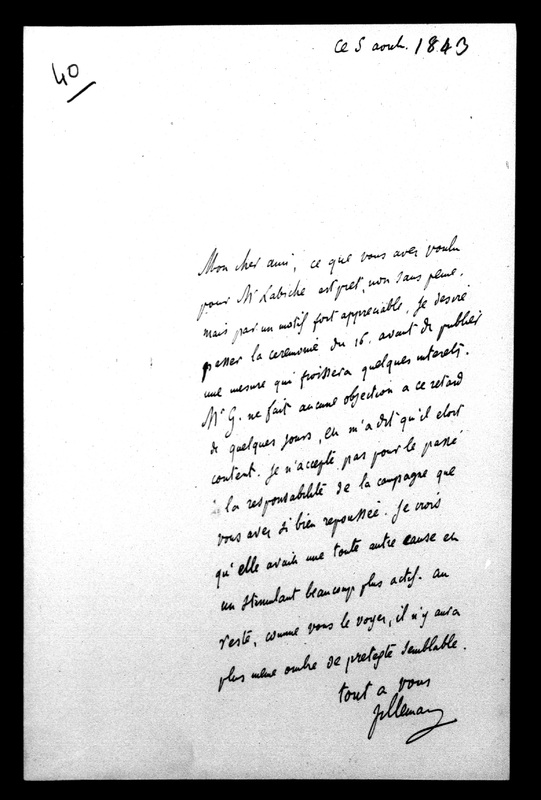 40
ce 5 aout. 1843
Mon cher ami, ce que vous avez voulu
pour Mr Labiche est pret, non sans peine.
mais par un motif fort appreciable, je desire
passer la ceremonie du 16. avant de publier
une mesure qui froissera quelques interets.
Mr G. ne fait aucune objection a ce retard
de quelques jours, en m'a dit qu'il etoit
content. Je n'accepte pas pour le passé
la responsabilité de la campagne que
vous avez si bien repoussée. Je crois
qu'elle avait une toute autre cause en
un stimulant beaucoup plus actif. au
reste, comme vous le voyez, il n'y aura
plus meme ombre de pretexte semblable.
tout a vous
Villemain